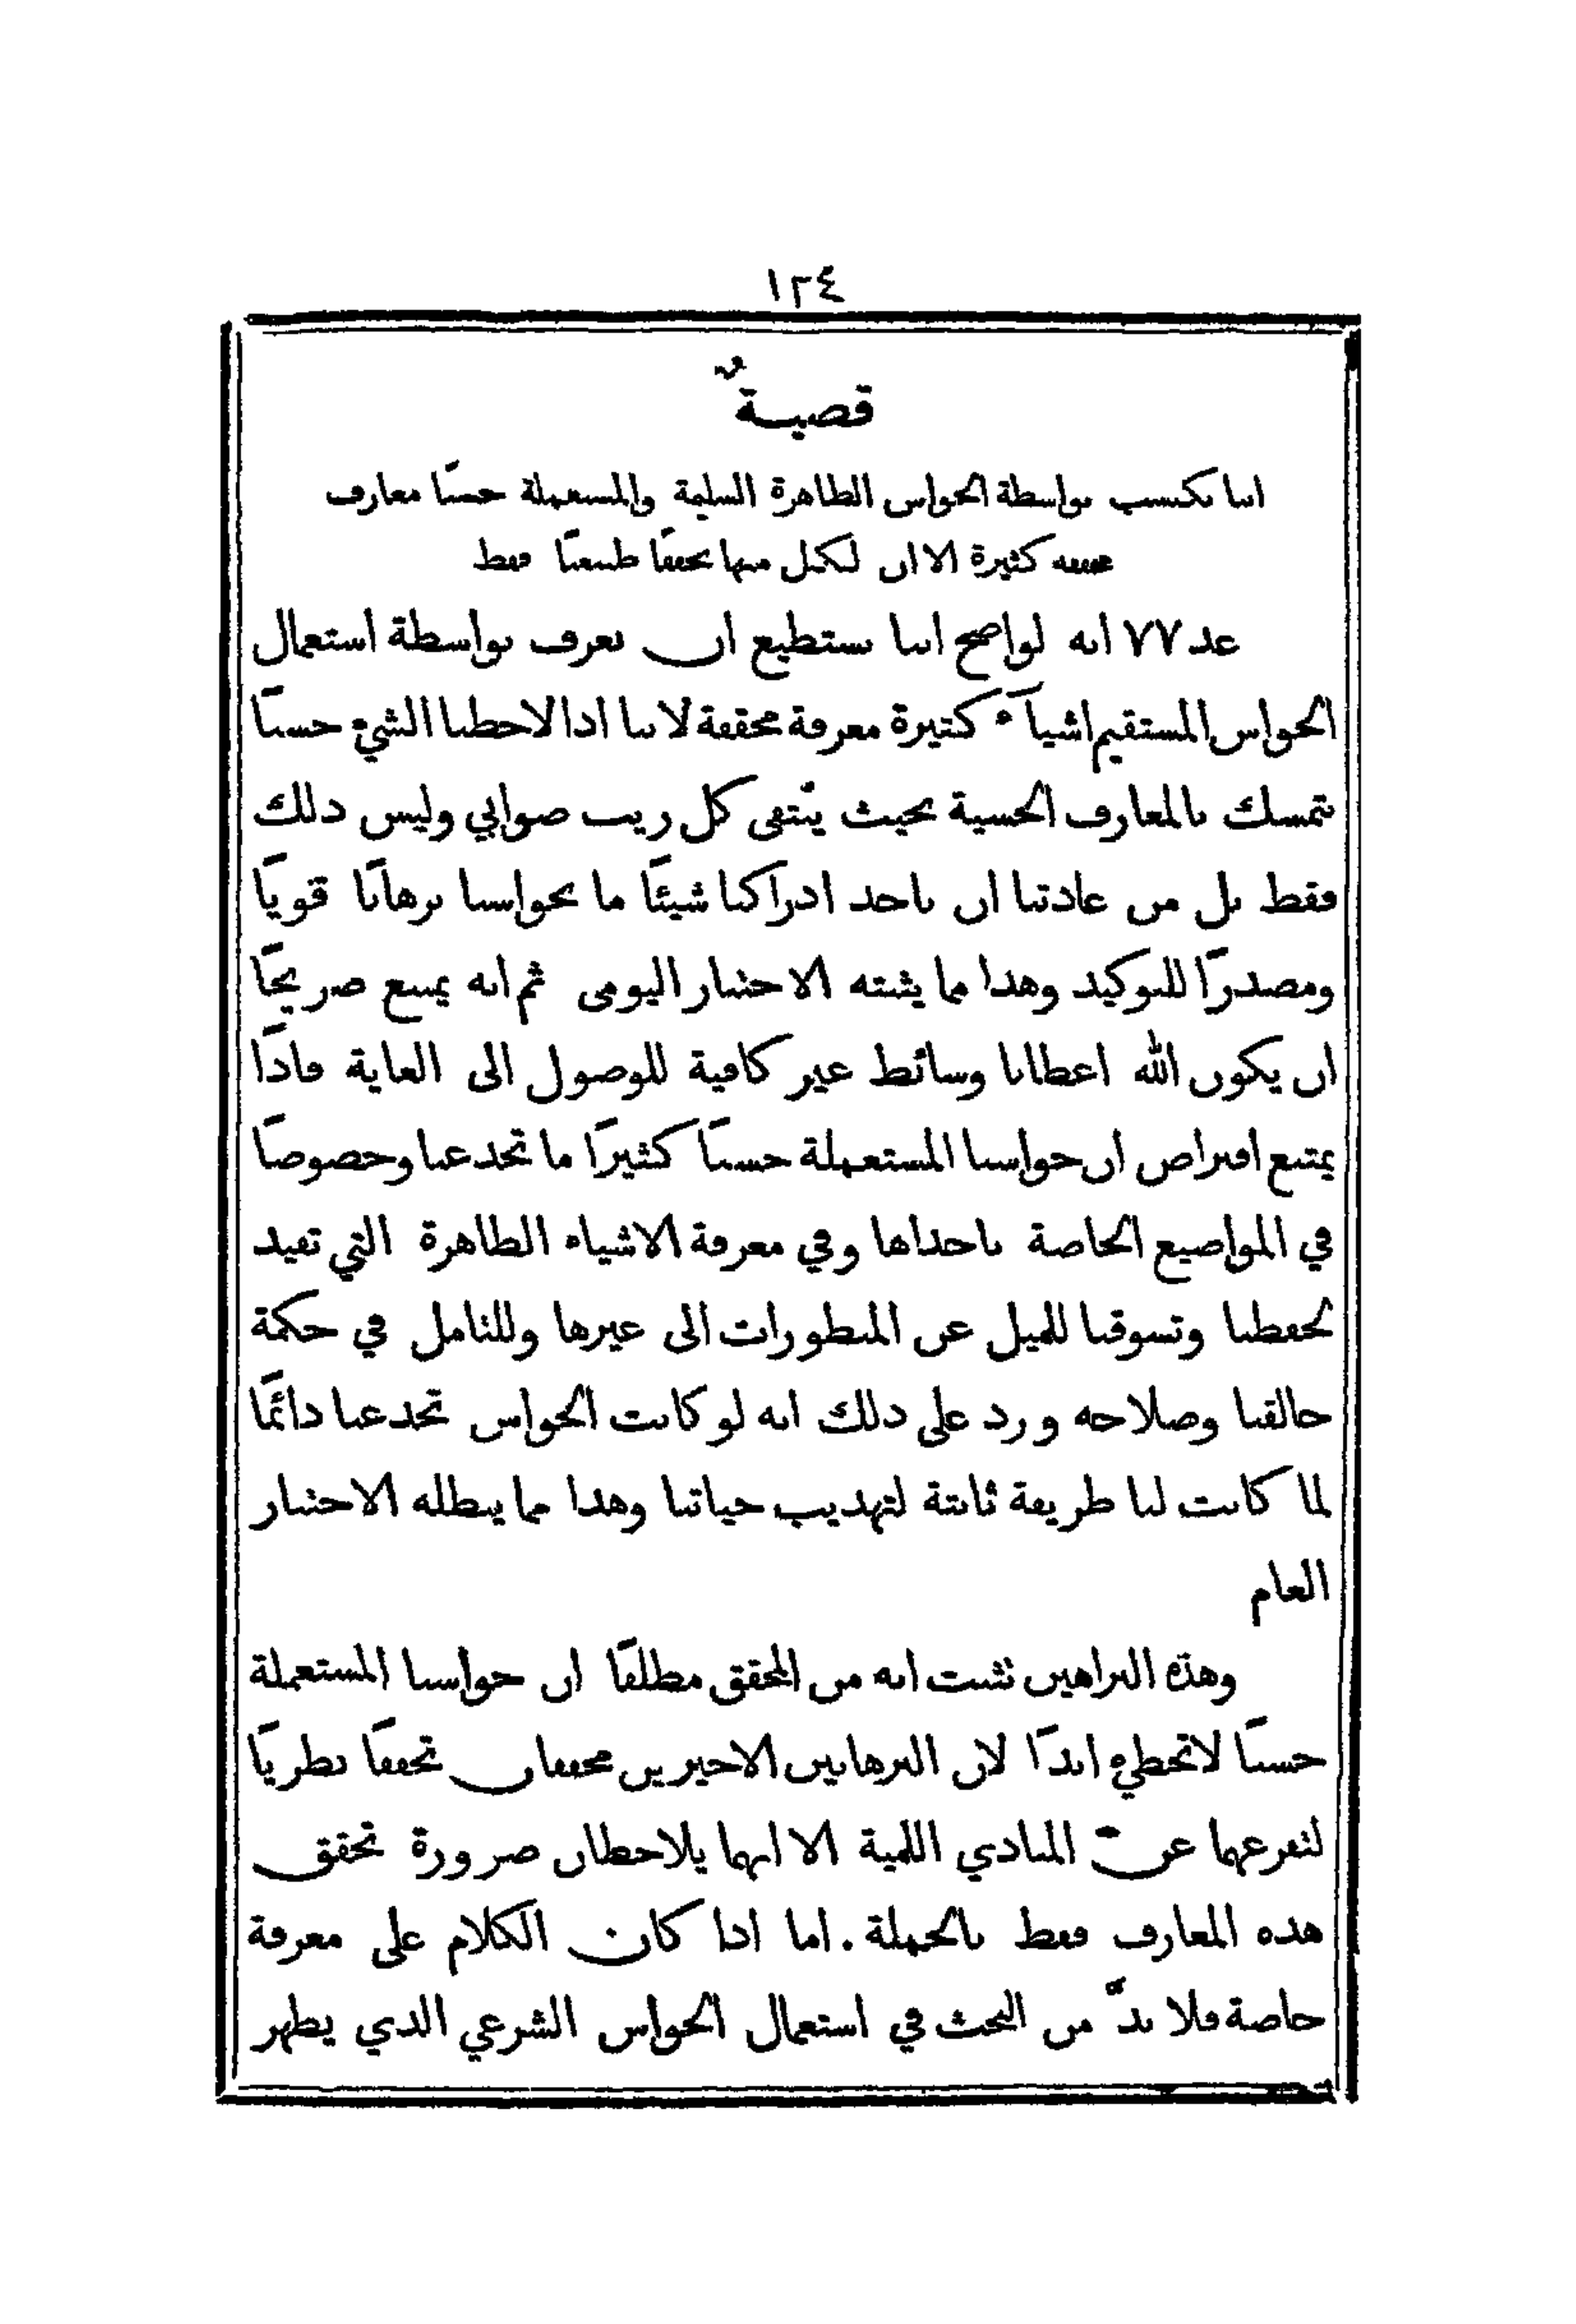 ١٢٤
قضيةٌ
اننا نكتسب بواسطة الحواس الظاهرة السليمة والمستعملة حسنًا معارف
حقيقية كثيرة الا ان لكل منها تحققًا طبيعيًا فقط
عد ٧٧ انه لواضح اننا نستطيع ان نعرف بواسطة استعمال
الحواس المستقيم اشياءً كثيرة معرفة محققة لاننا اذا لاحظنا الشيء حسنًا
نتمسك بالمعارف الحسية بحيث ينتفى كل ريب صوابي وليس ذلك
فقط بل من عادتنا ان ناخذ ادراكنا شيئًا ما بحواسنا برهانًا قويًا
ومصدرًا للتوكيد وهذا مما يثبته الاختبار اليومى ثم انه يمتنع صريحًا
ان يكون الله اعطانا وسائط غير كافية للوصول الى الغاية فاذًا
يمتنع افتراض ان حواسنا المستعملة حسنًا كثيرًا ما تخدعنا وخصوصًا
في المواضيع الخاصة باحداها وفي معرفة الاشياء الظاهرة التي تفيد
لحفظنا وتسوقنا للميل عن المنظورات الى غيرها وللتامل في حكمة
خالقنا وصلاحه وزد على ذلك انه لو كانت الحواس تخدعنا دائمًا
لما كانت لنا طريقة ثابتة لتهذيب حياتنا وهذا مما يبطله الاختبار
العام
وهذه البراهين تثبت انه من المحقق مطلقًا ان حواسنا المستعملة
حسنًا لا تخطيء ابدًا لان البرهانين الاخيرين محققان تحققًا نظريًا
لتفرعهما عن المبادي اللمية الا انهما يلاحظان ضرورة تحقق
هذه المعارف فقط بالجملة . اما اذا كان الكلام على معرفة
خاصة فلا بدَّ من البحث في استعمال الحواس الشرعي الذي يظهر